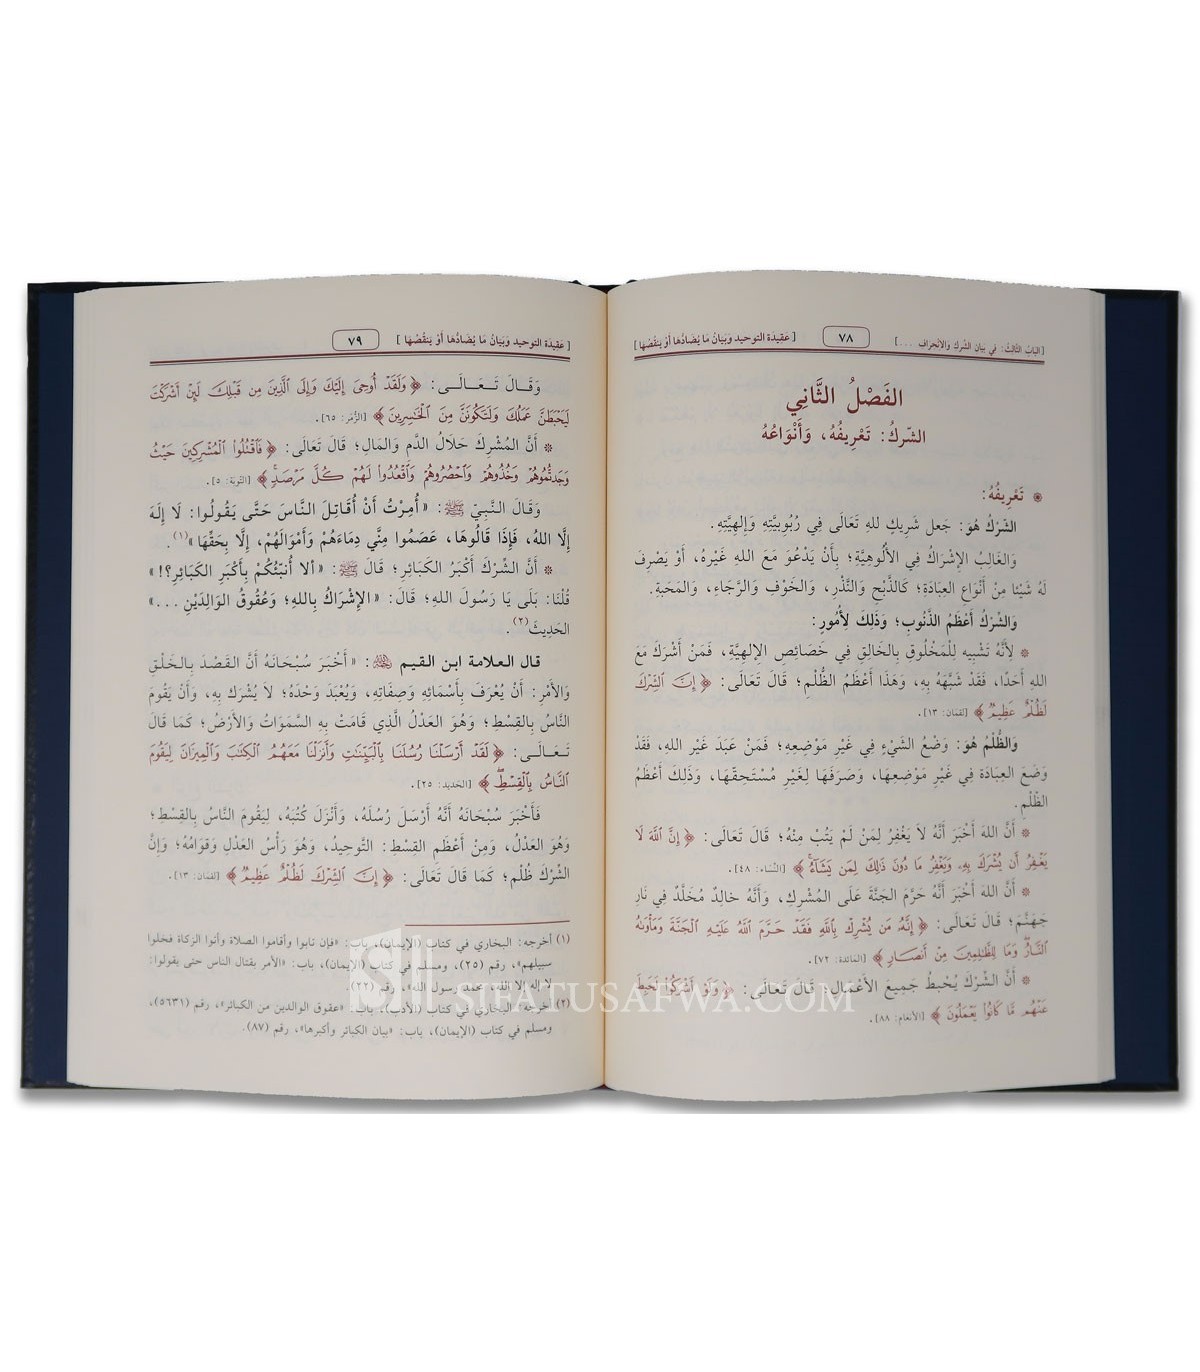 [الباب الثالث: في بيان الشرك والانحراف ...]
٧٨
[عَقِيدَة التوحيد وَبَيانُ مَا يُضَادُّهَا أَوْ يَنقُصُهَا]
الفَصْلُ الثَّانِي
الشركُ: تَعْرِيفُهُ، وَأَنْوَاعُهُ
* تَعْرِيفُهُ:
الشركُ هُوَ: جَعل شَرِيكٍ للهِ تَعَالَى فِي رُبُوبِيَّتِهِ وَإِلهِيَّتِهِ.
وَالغَالِبُ الإِشْرَاكُ فِي الأُلُوهِيَّةِ؛ بِأَنْ يَدْعُوَ مَعَ اللهِ غَيْرَهُ، أَوْ يَصْرِفَ
لَهُ شَيْئًا مِنْ أَنْوَاعِ العِبَادَةِ؛ كَالذَّبْحِ وَالنَّذْرِ، وَالخَوْفِ وَالرَّجَاءِ، وَالمَحَبةِ.
وَالشِّرْكُ أَعْظَمُ الذُّنُوبِ؛ وَذَلِكَ لِأُمُورٍ:
* لِأَنَّهُ تَشْبِيه لِلْمَخْلُوقِ بِالخَالِقِ فِي خَصَائِصِ الإِلهِيَّةِ، فَمَنْ أَشْرَكَ مَعَ
اللهِ أَحَدًا، فَقَدْ شَبَّهَهُ بِهِ، وَهَذَا أَعْظَمُ الظُّلْمِ؛ قَالَ تَعَالَى: ﴿ إِنَّ الشِّرْكَ
لَظُلْمٌ عَظِيمٌ ﴾ [لقمَان: ١٣].
وَالظُّلْمُ هُوَ: وَضْعُ الشَّيْءِ فِي غَيْرِ مَوْضِعِهِ؛ فَمَنْ عَبَدَ غَيْرَ اللهِ، فَقَدْ
وَضَعَ العِبَادَةَ فِي غَيْرِ مَوْضِعِهَا، وَصَرَفَهَا لِغَيْرِ مُسْتَحِقِّهَا، وَذَلِكَ أَعْظَمُ
الظُّلْمِ.
* أَنَّ اللهَ أَخْبَرَ أَنَّهُ لَا يَغْفِرُ لِمَنْ لَمْ يَتُبْ مِنْهُ؛ قَالَ تَعَالَى: ﴿ إِنَّ اللَّهَ لَا
يَغْفِرُ أَن يُشْرَكَ بِهِ وَيَغْفِرُ مَا دُونَ ذَلِكَ لِمَن يَشَآءُ ﴾ [النِّسَاء: ٤٨].
* أَنَّ اللهَ أَخْبَرَ أَنَّهُ حَرَّمَ الجَنَّةَ عَلَى المُشْرِكِ، وَأَنَّهُ خَالِدٌ مُخَلَّدٌ فِي نَارِ
جَهَنَّمَ؛ قَالَ تَعَالَى: ﴿ إِنَّهُ مَن يُشْرِكْ بِاللَّهِ فَقَدْ حَرَّمَ اللَّهُ عَلَيْهِ الْجَنَّةَ وَمَأْوَىٰهُ
النَّارُ وَمَا لِلظَّٰلِمِينَ مِنْ أَنصَارٍ ﴾ [المَائدة: ٧٢].
* أَنَّ الشِّرْكَ يُحْبِطُ جَمِيعَ الأَعْمَالِ؛ قَالَ تَعَالَى: ﴿ وَلَوْ أَشْرَكُوا لَحَبِطَ
عَنْهُم مَّا كَانُوا يَعْمَلُونَ ﴾ [الأنعَام: ٨٨].
[عَقِيدَة التوحيد وَبَيانُ مَا يُضَادُّهَا أَوْ يَنقُصُهَا]
٧٩
وَقَالَ تَعَالَى: ﴿ وَلَقَدْ أُوحِيَ إِلَيْكَ وَإِلَى الَّذِينَ مِن قَبْلِكَ لَئِنْ أَشْرَكْتَ
لَيَحْبَطَنَّ عَمَلُكَ وَلَتَكُونَنَّ مِنَ الْخَٰسِرِينَ ﴾ [الزُّمَر: ٦٥].
* أَنَّ المُشْرِكَ حَلَالُ الدَّمِ وَالمَالِ؛ قَالَ تَعَالَى: ﴿ فَاقْتُلُوا الْمُشْرِكِينَ حَيْثُ
وَجَدتُّمُوهُمْ وَخُذُوهُمْ وَاحْصُرُوهُمْ وَاقْعُدُوا لَهُمْ كُلَّ مَرْصَدٍ ﴾ [التَّوبَة: ٥].
وَقَالَ النَّبِيُّ ﷺ: «أُمِرْتُ أَنْ أُقَاتِلَ النَّاسَ حَتَّى يَقُولُوا: لَا إِلَهَ
إِلَّا اللهُ، فَإِذَا قَالُوهَا، عَصَمُوا مِنِّي دِمَاءَهُمْ وَأَمْوَالَهُمْ، إِلَّا بِحَقِّهَا»(١).
* أَنَّ الشِّرْكَ أَكْبَرُ الكَبَائِرِ؛ قَالَ ﷺ: «أَلا أُنَبِّئُكُمْ بِأَكْبَرِ الكَبَائِرِ؟!»
قُلْنَا: بَلَى يَا رَسُولَ اللهِ؛ قَالَ: «الإِشْرَاكُ بِاللهِ؛ وَعُقُوقُ الوَالِدَيْنِ ...»
الحَدِيثَ(٢).
قال العلامة ابن القيم رحمه الله: «أَخْبَرَ سُبْحَانَهُ أَنَّ القَصْدَ بِالخَلْقِ
وَالأَمْرِ: أَنْ يُعْرَفَ بِأَسْمَائِهِ وَصِفَاتِهِ، وَيُعْبَدَ وَحْدَهُ؛ لَا يُشْرَكَ بِهِ، وَأَنْ يَقُومَ
النَّاسُ بِالقِسْطِ؛ وَهُوَ العَدْلُ الَّذِي قَامَتْ بِهِ السَّمَوَاتُ وَالأَرْضُ؛ كَمَا قَالَ
تَعَالَى: ﴿ لَقَدْ أَرْسَلْنَا رُسُلَنَا بِالْبَيِّنَٰتِ وَأَنزَلْنَا مَعَهُمُ الْكِتَٰبَ وَالْمِيزَانَ لِيَقُومَ
النَّاسُ بِالْقِسْطِ ﴾ [الحَديد: ٢٥].
فَأَخْبَرَ سُبْحَانَهُ أَنَّهُ أَرْسَلَ رُسُلَهُ، وَأَنْزَلَ كُتُبَهُ، لِيَقُومَ النَّاسُ بِالقِسْطِ؛
وَهُوَ العَدْلُ، وَمِنْ أَعْظَمِ القِسْطِ: التَّوحِيدُ، وَهُوَ رَأْسُ العَدْلِ وَقَوَامُهُ؛ وَإِنَّ
الشِّرْكَ ظُلْم؛ كَمَا قَالَ تَعَالَى: ﴿ إِنَّ الشِّرْكَ لَظُلْمٌ عَظِيمٌ ﴾ [لقمَان: ١٣].
(١) أخرجه: البخاري في كتاب (الإيمان)، باب: «فإن تابوا وأقاموا الصلاة وآتوا الزكاة فخلوا
سبيلهم»، رقم (٢٥)، ومسلم في كتاب (الإيمان)، باب: «الأمر بقتال الناس حتى يقولوا:
لا إله إلا الله، محمد رسول الله»، رقم (٢٢).
(٢) أخرجه: البخاري في كتاب (الأدب)، باب: «عقوق الوالدين من الكبائر»، رقم (٥٦٣١)،
ومسلم في كتاب (الإيمان)، باب: «بيان الكبائر وأكبرها»، رقم (٨٧).
SIFATUSAFWA.COM